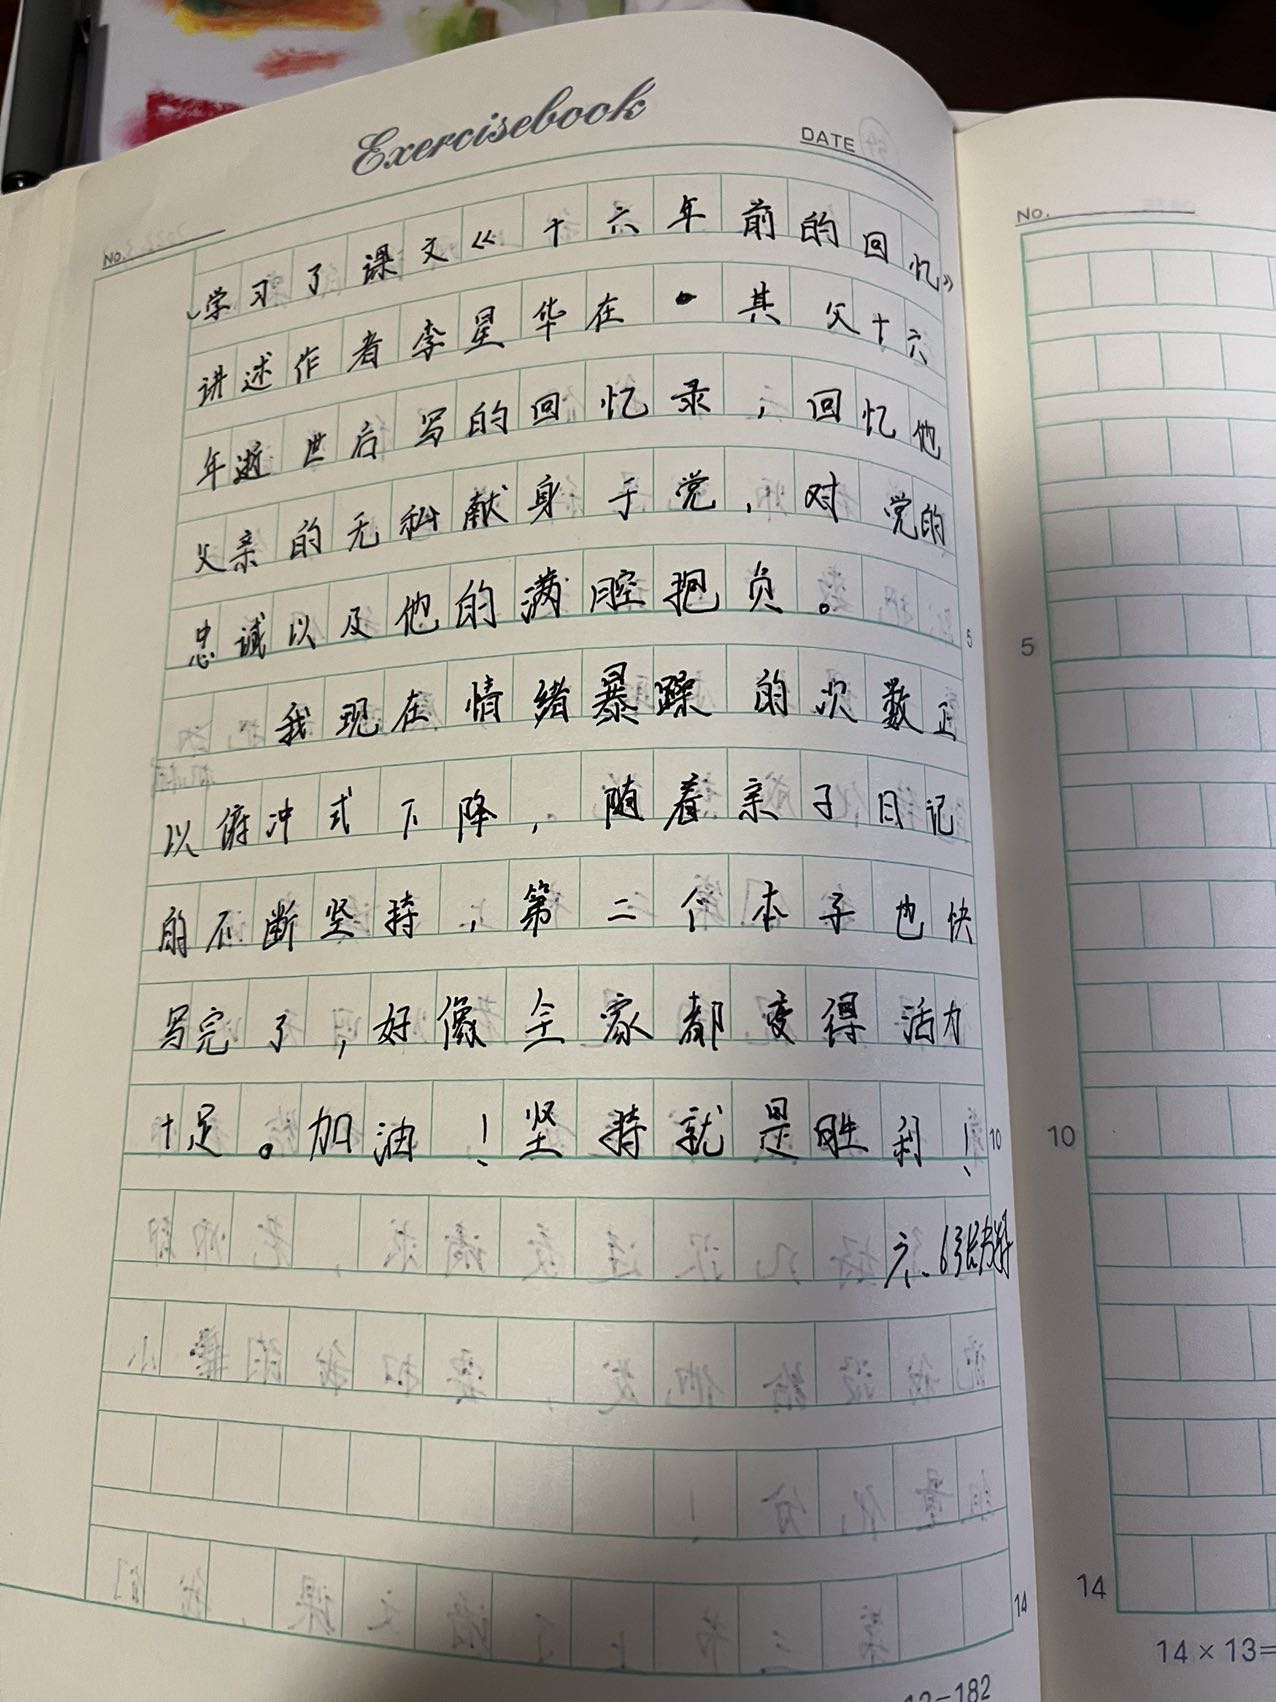 Exercisebook
DATE
No.
、学习了课文《十六年前的回忆》
讲述作者李星华在其父十六
年逝世后写的回忆录，回忆他
父亲的无私献身于党，对党的
忠诚以及他的满腔抱负。
我现在情绪暴躁的次数正
以俯冲式下降，随着亲子日记
的不断坚持，第二个本子也快
写完了，好像全家都变得活力
十足。加油！坚持就是胜利！
六、6张
5
10
14
No.
5
10
14
14×13=
13=182